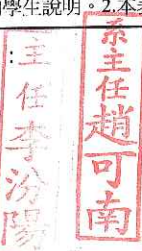 學生說明。2.本
系主任趙可南
主任李汾陽